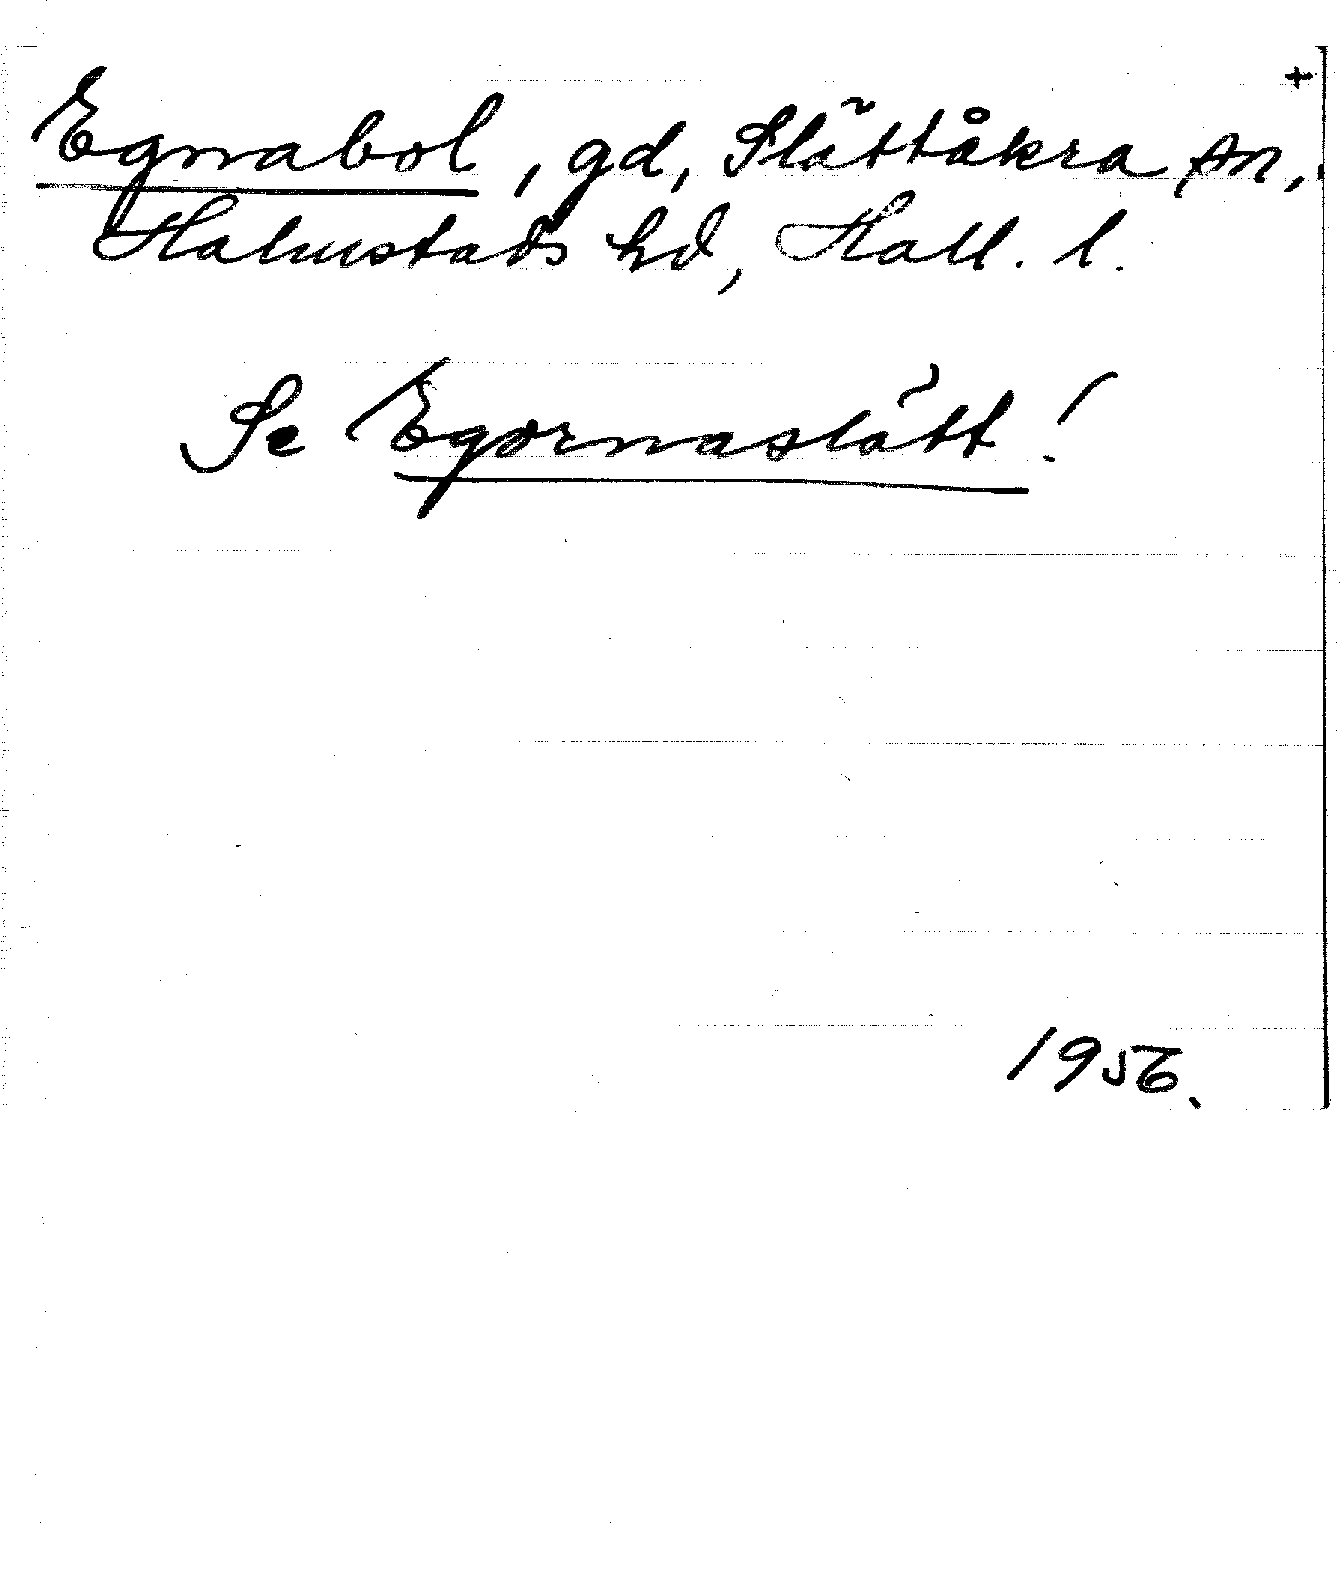 +
Egnabol, gd, Slättåkra sn,
Halmstads hd, Hall. l.
Se Egornaslätt!
1956.